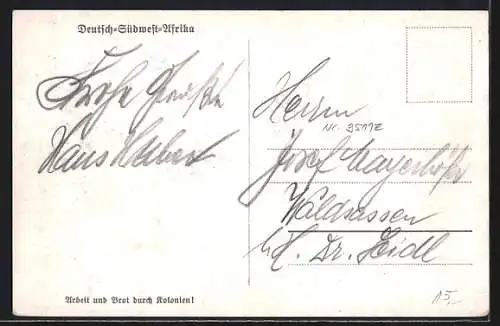 Deutsch=Südwest=Afrika
Frohe Grüße
Hans Huber
Herrn
Nr. 9511Z
Josef Mayerhöfer
Waldsassen
Dr. Heidl
Arbeit und Brot durch Kolonien!
15.